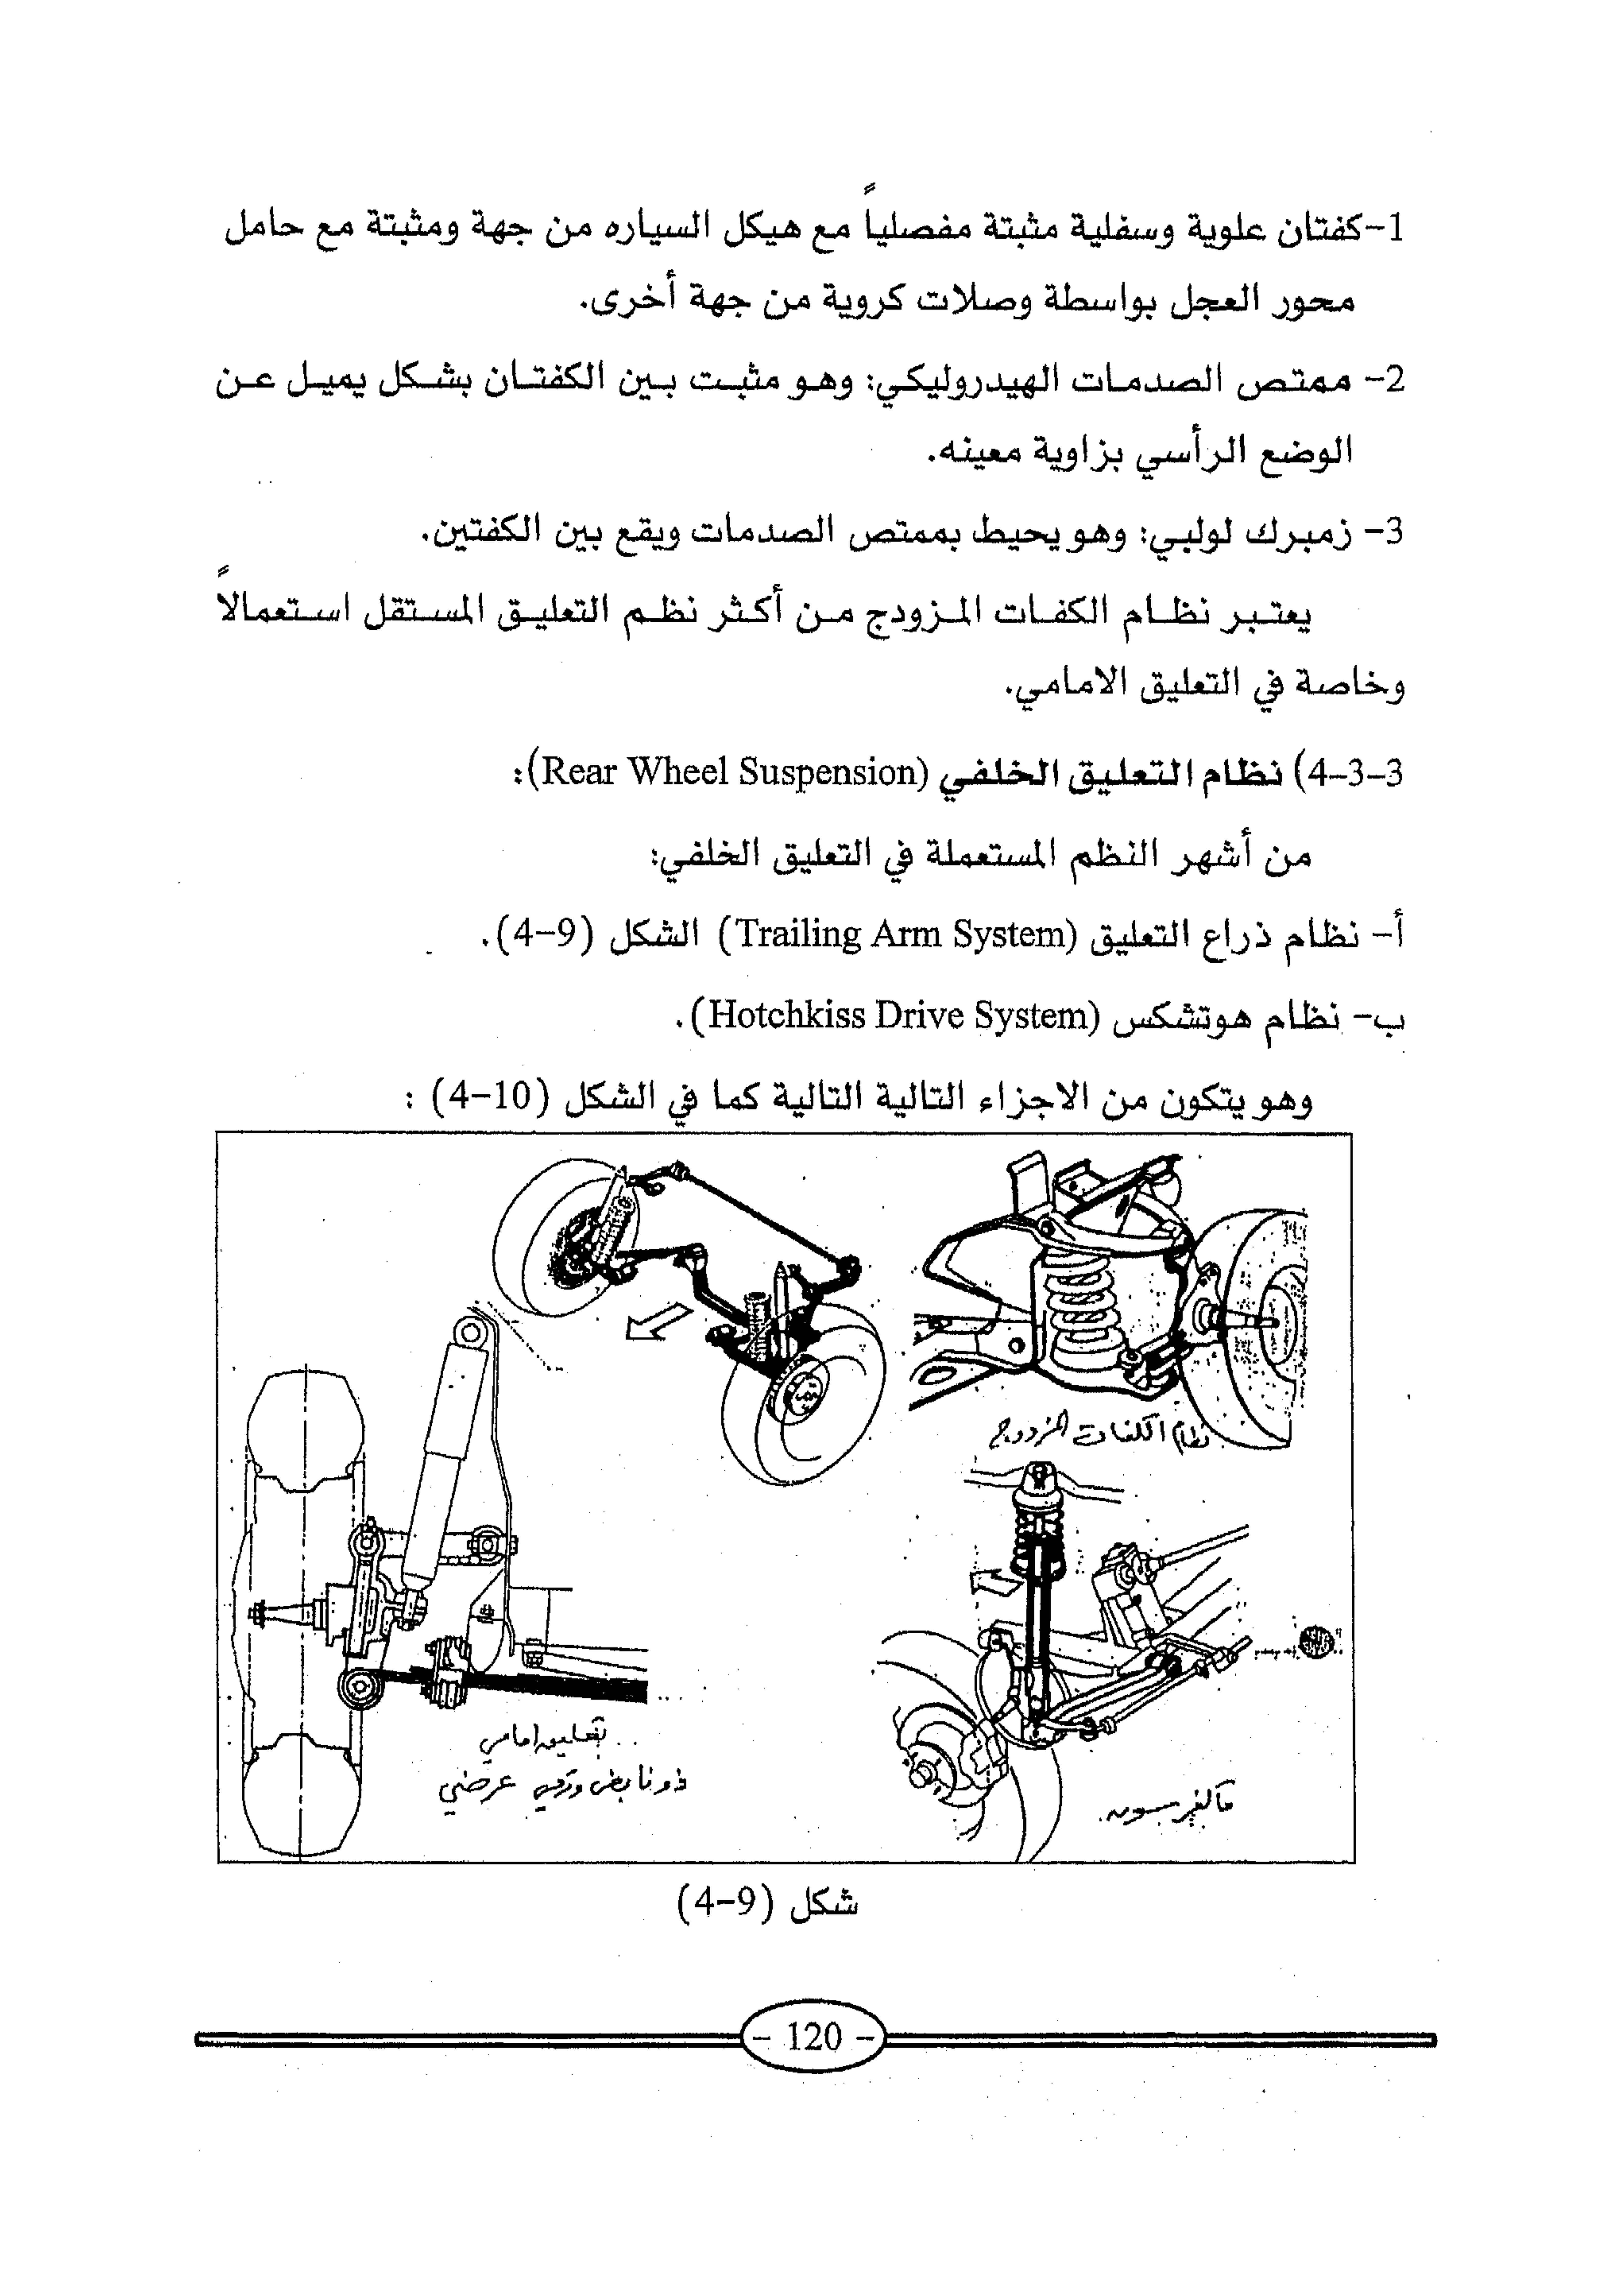 1-كفتان علوية وسفلية مثبتة مفصلياً مع هيكل السياره من جهة ومثبتة مع حامل
محور العجل بواسطة وصلات كروية من جهة أخرى.
2- ممتص الصدمات الهيدروليكي: وهو مثبت بين الكفتان بشكل يميل عن
الوضع الرأسي بزاوية معينه.
3- زمبرك لولبي: وهو يحيط بممتص الصدمات ويقع بين الكفتين.
يعتبر نظام الكفات المزودج من أكثر نظم التعليق المستقل استعمالاً
وخاصة في التعليق الامامي.
4-3-3) نظام التعليق الخلفي (Rear Wheel Suspension):
من أشهر النظم المستعملة في التعليق الخلفي:
أ- نظام ذراع التعليق (Trailing Arm System) الشكل (4-9).
ب- نظام هوتشكس (Hotchkiss Drive System).
وهو يتكون من الاجزاء التالية التالية كما في الشكل (4-10) :
نظام الكفات المزدوج
تعليق امامي
ذو نابض ورقي عرضي
ماكفرسون
شكل (4-9)
- 120 -